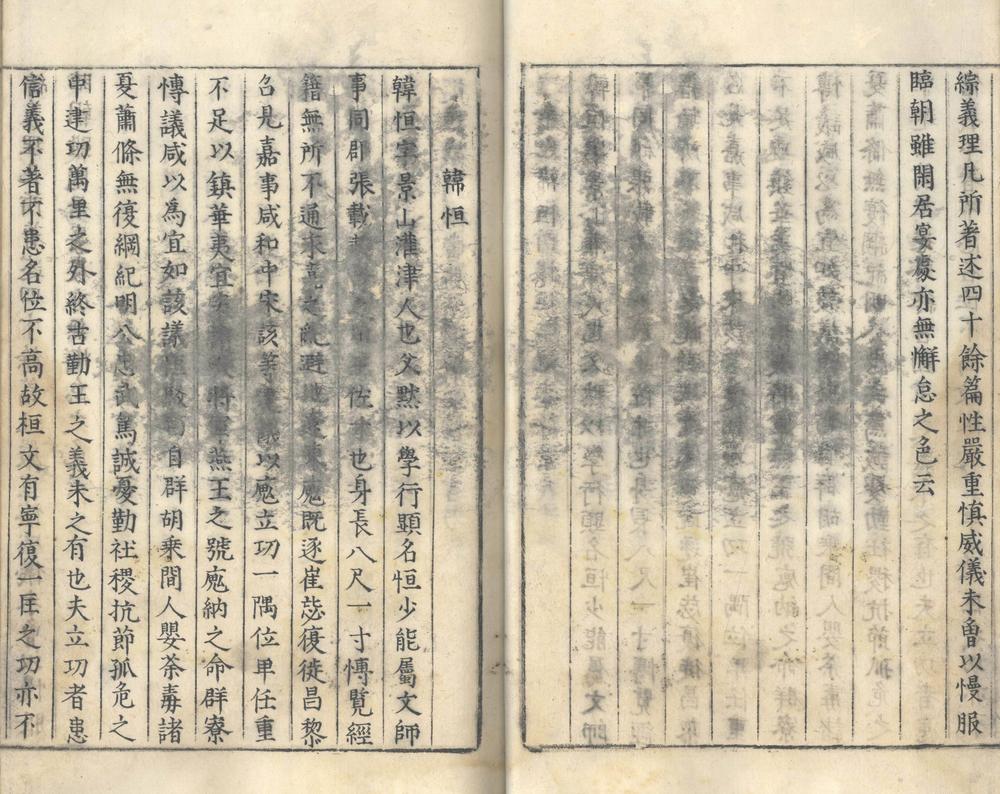 綜義理凡所著述四十餘篇性嚴重慎威儀未曾以慢服
臨朝雖閑居宴處亦無懈怠之色云
韓恒
韓恒字景山灌津人也父黙以學行顯名恒少能屬文師
事同郡張載 佐 也身長八尺一寸博覽經
籍無所不通 之亂避 廆既逐崔毖復徙昌黎
召見嘉事咸和中宋該等 議以廆立功一隅位卑任重
不足以鎮華夷宜 將軍燕王之號廆納之命群寮
博議咸以為宜如該議恒駁 自群胡乘間人嬰荼毒諸
夏蕭條無復綱紀明公忠武篤誠憂勤社稷抗節孤危之
中建功萬里之外終古勤王之義未之有也夫立功者患
信義不著不患名位不高故桓文有寧復一匡之功亦不